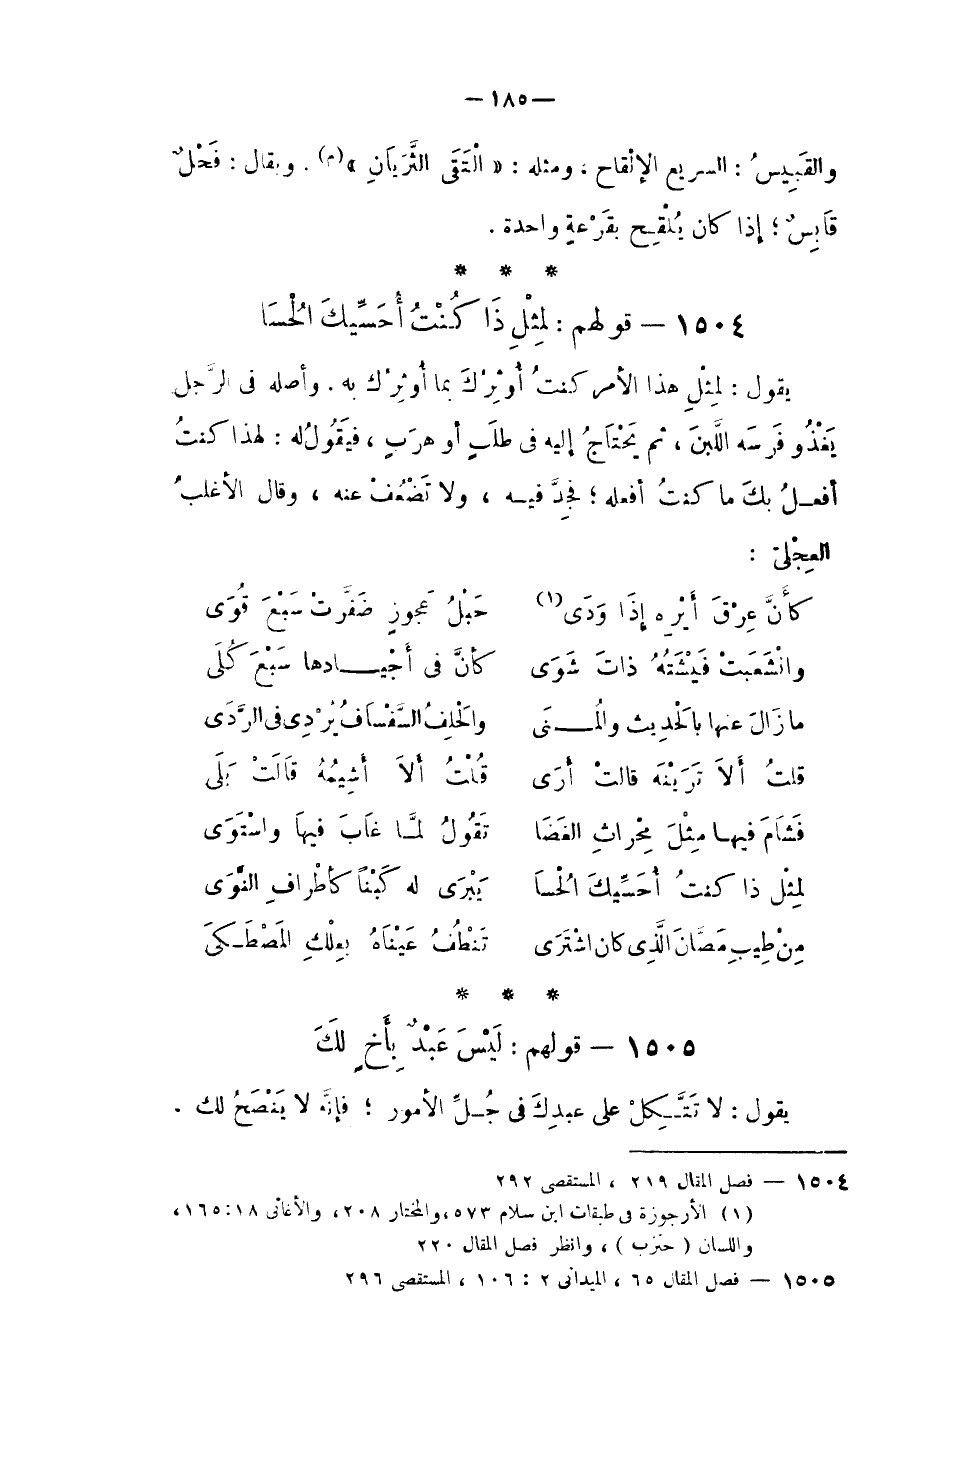 — ١٨٥ —
والقَبِيسُ : السريع الإلْقاح ، ومثله : « الْتَقَى الثَّرَيَانِ »(م) . ويقال : فَحْلٌ
قَابِسٌ ؛ إذا كان يُلْقِح بقَرْعةٍ واحدة .
* * *
١٥٠٤ — قولهم : لِمِثْلِ ذَا كُنْتُ أُحَسِّيكَ الْحُسَا
يقول : لمِثْلِ هذا الأمر كنتُ أُوثِرُكَ بما أُوثِرُك به . وأصله فى الرَّجل
يَغْذُو فَرسَه اللَّبنَ ، ثم يَحْتَاجُ إليه فى طلَبٍ أو هرَبٍ ، فيَقُولُ له : لهذا كنتُ
أفعـلُ بكَ ما كنتُ أفعله ؛ فجِدَّ فيـه ، ولا تَضْعُفْ عنه ، وقال الأغلبُ
العِجْلىّ :
كأَنَّ عِرْقَ أَيْرِهِ إذَا وَدَى(١) حَبْلُ عَجوزٍ ضَفَّرتْ سَبْعَ قُوَى
وانْشَعَبَتْ فَيْشَتُهُ ذاتَ شَوَى كأنَّ فى أَجْيـادها سَبْعَ كُلَى
ما زَالَ عنها بالْحَدِيث والْمُـنَى والْخُلِفُ السَّفْسافُ يُرْدِى فى الرَّدَى
قلتُ أَلاَ تَرَيْنَه قالتْ أَرَى قُلْتُ أَلاَ أَشِيمُهُ قَالَتْ بَلَى
فَشَامَ فيهـا مِثْلَ مِحْراثِ الغَضَا تَقُولُ لمَّـا غَابَ فيهَا واسْتَوَى
لِمِثْل ذا كنتُ أُحَسِّيكَ الْحُسا يَبْرَى له كَبْنًا كأطْرافِ النَّوَى
مِنْ طِيبِ مَصَّانَ الَّذِى كان اشْتَرَى تَنْطُفُ عَيْنَاهُ بعِلْكِ المَصْطَـكَى
* * *
١٥٠٥ — قولهم : لَيْسَ عَبْدٌ بِأَخٍ لَكَ
يقول : لا تَتَّـكِلْ على عبدِكَ فى جُـلِّ الأمور ؛ فإنَّه لا يَنْصَحُ لك .
١٥٠٤ — فصل المقال ٢١٩ ، المستقصى ٢٩٢
(١) الأرجوزة فى طبقات ابن سلام ٥٧٣ ، والمختار ٢٠٨ ، والأغانى ١٨ : ١٦٥ ،
واللسان ( حنزب ) ، وانظر فصل المقال ٢٢٠
١٥٠٥ — فصل المقال ٦٥ ، الميدانى ٢ : ١٠٦ ، المستقصى ٢٩٦